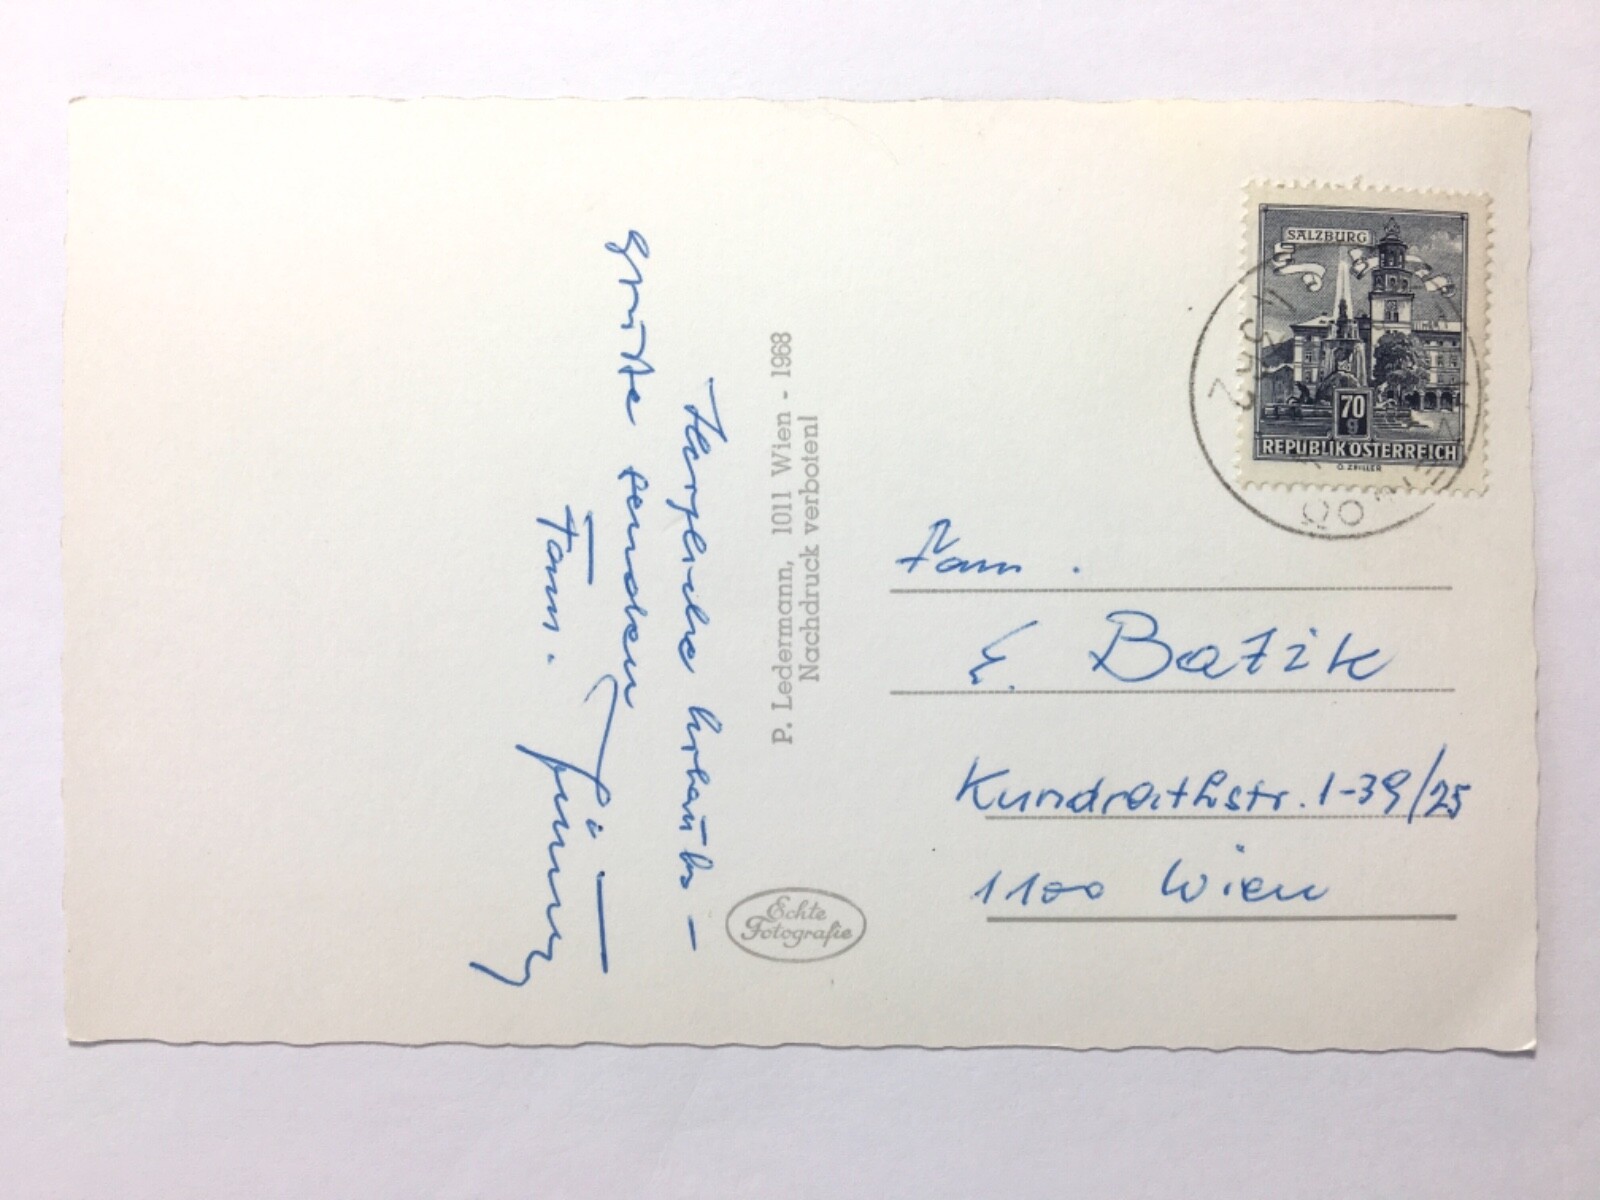 Herzliche Urlaubs-
grüße senden
Fam.
P. Ledermann, 1011 Wien - 1968
Nachdruck verboten!
Echte
Fotografie
SALZBURG
70
g
REPUBLIK ÖSTERREICH
Fam.
Batik
Kundrathstr. 1-39/25
1100 Wien